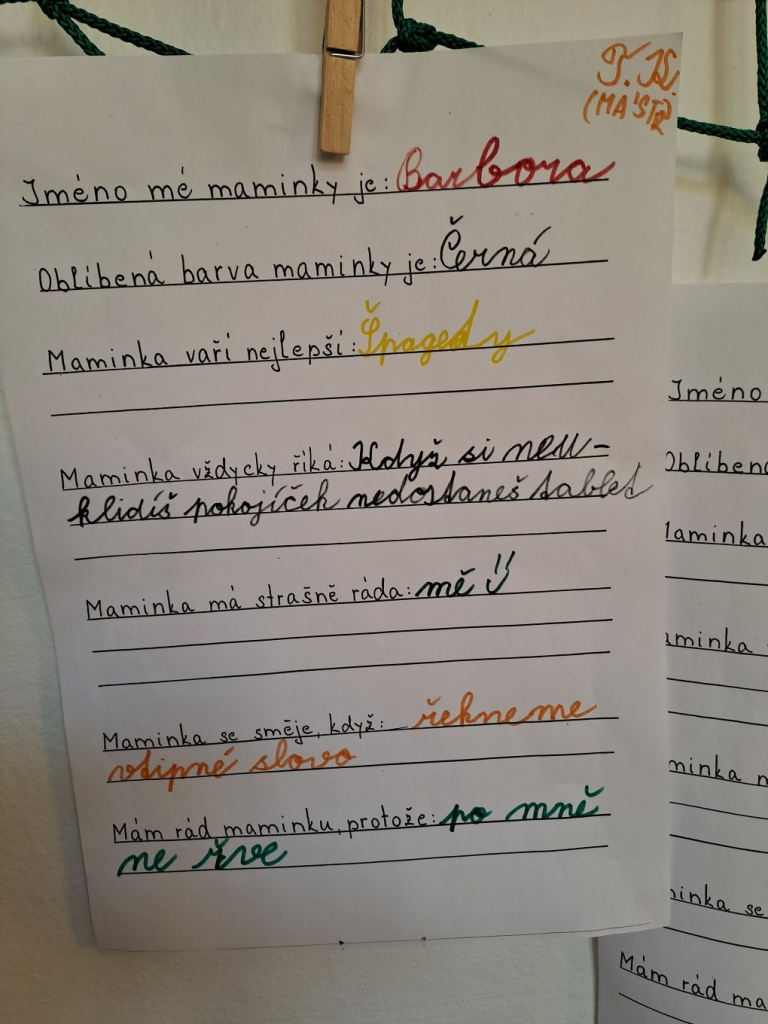 T. K.
(MAŠTR)
Jméno mé maminky je: Barbora
Oblíbená barva maminky je: Černá
Maminka vaří nejlepší: Špagedy
Maminka vždycky říká: Když si neu-
klidíš pokojíček nedostaneš tablet
Maminka má strašně ráda: mě
Maminka se směje, když: řekneme
vtipné slovo
Mám rád maminku, protože: po mně
ne řve
Jméno
Oblíben
aminka
minka
minka
inka se
Mám rád ma